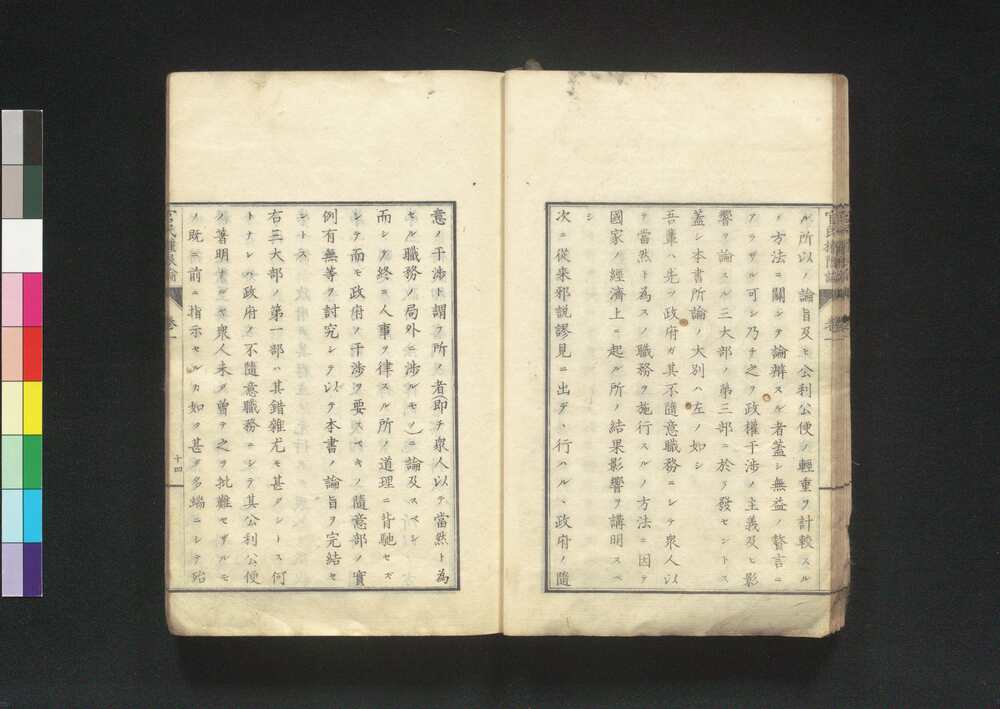 ル所以ノ論旨及ヒ公利公便ノ輕重ヲ計較スル
ノ方法ニ關シテ論辨スル者蓋シ無益ノ贅言ニ
アラザル可シ乃チ之ヲ政權干渉ノ主義及ヒ影
響ヲ論スル三大部ノ第三部ニ於テ發セントス
蓋シ本書所論ノ大別ハ左ノ如シ
吾輩ハ先ヅ政府ガ其不隨意職務ニシテ衆人以
テ當然ト為スノ職務ヲ施行スルノ方法ニ因テ
國家ノ經濟上ニ起ル所ノ結果影響ヲ講明スベ
シ
次ニ從来邪説謬見ニ出デヽ行ハルヽ政府ノ隨
意ノ干渉ト謂フ所ノ者(即チ衆人以テ當然ト為
セル職務ノ局外ニ渉ルモノ)ニ論及スベシ
而シテ終ニ人事ヲ律スル所ノ道理ニ背馳セズ
シテ而モ政府ノ干渉ヲ要スベキノ隨意部ノ實
例有無等ヲ討究シテ以テ本書ノ論旨ヲ完結セ
ントス
右三大部ノ第一部ハ其錯雜尤モ甚タシトス何
トナレハ政府ノ不隨意職務ニシテ其公利公便
ノ著明ナル衆人未タ曾テ之ヲ批難セザルモ
ノ既ニ前ニ指示セルカ如ク甚タ多端ニシテ殆
卷一
十四